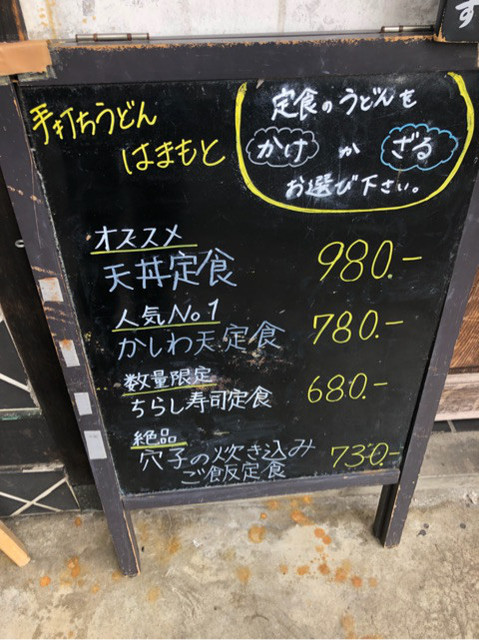 す
手打ちうどん
はまもと
定食のうどんを
かけ か ざる
お選び下さい。
オススメ
天丼定食 980.-
人気No.1
かしわ天定食 780.-
数量限定
ちらし寿司定食 680.-
絶品
穴子の炊き込み
ご飯定食 730.-